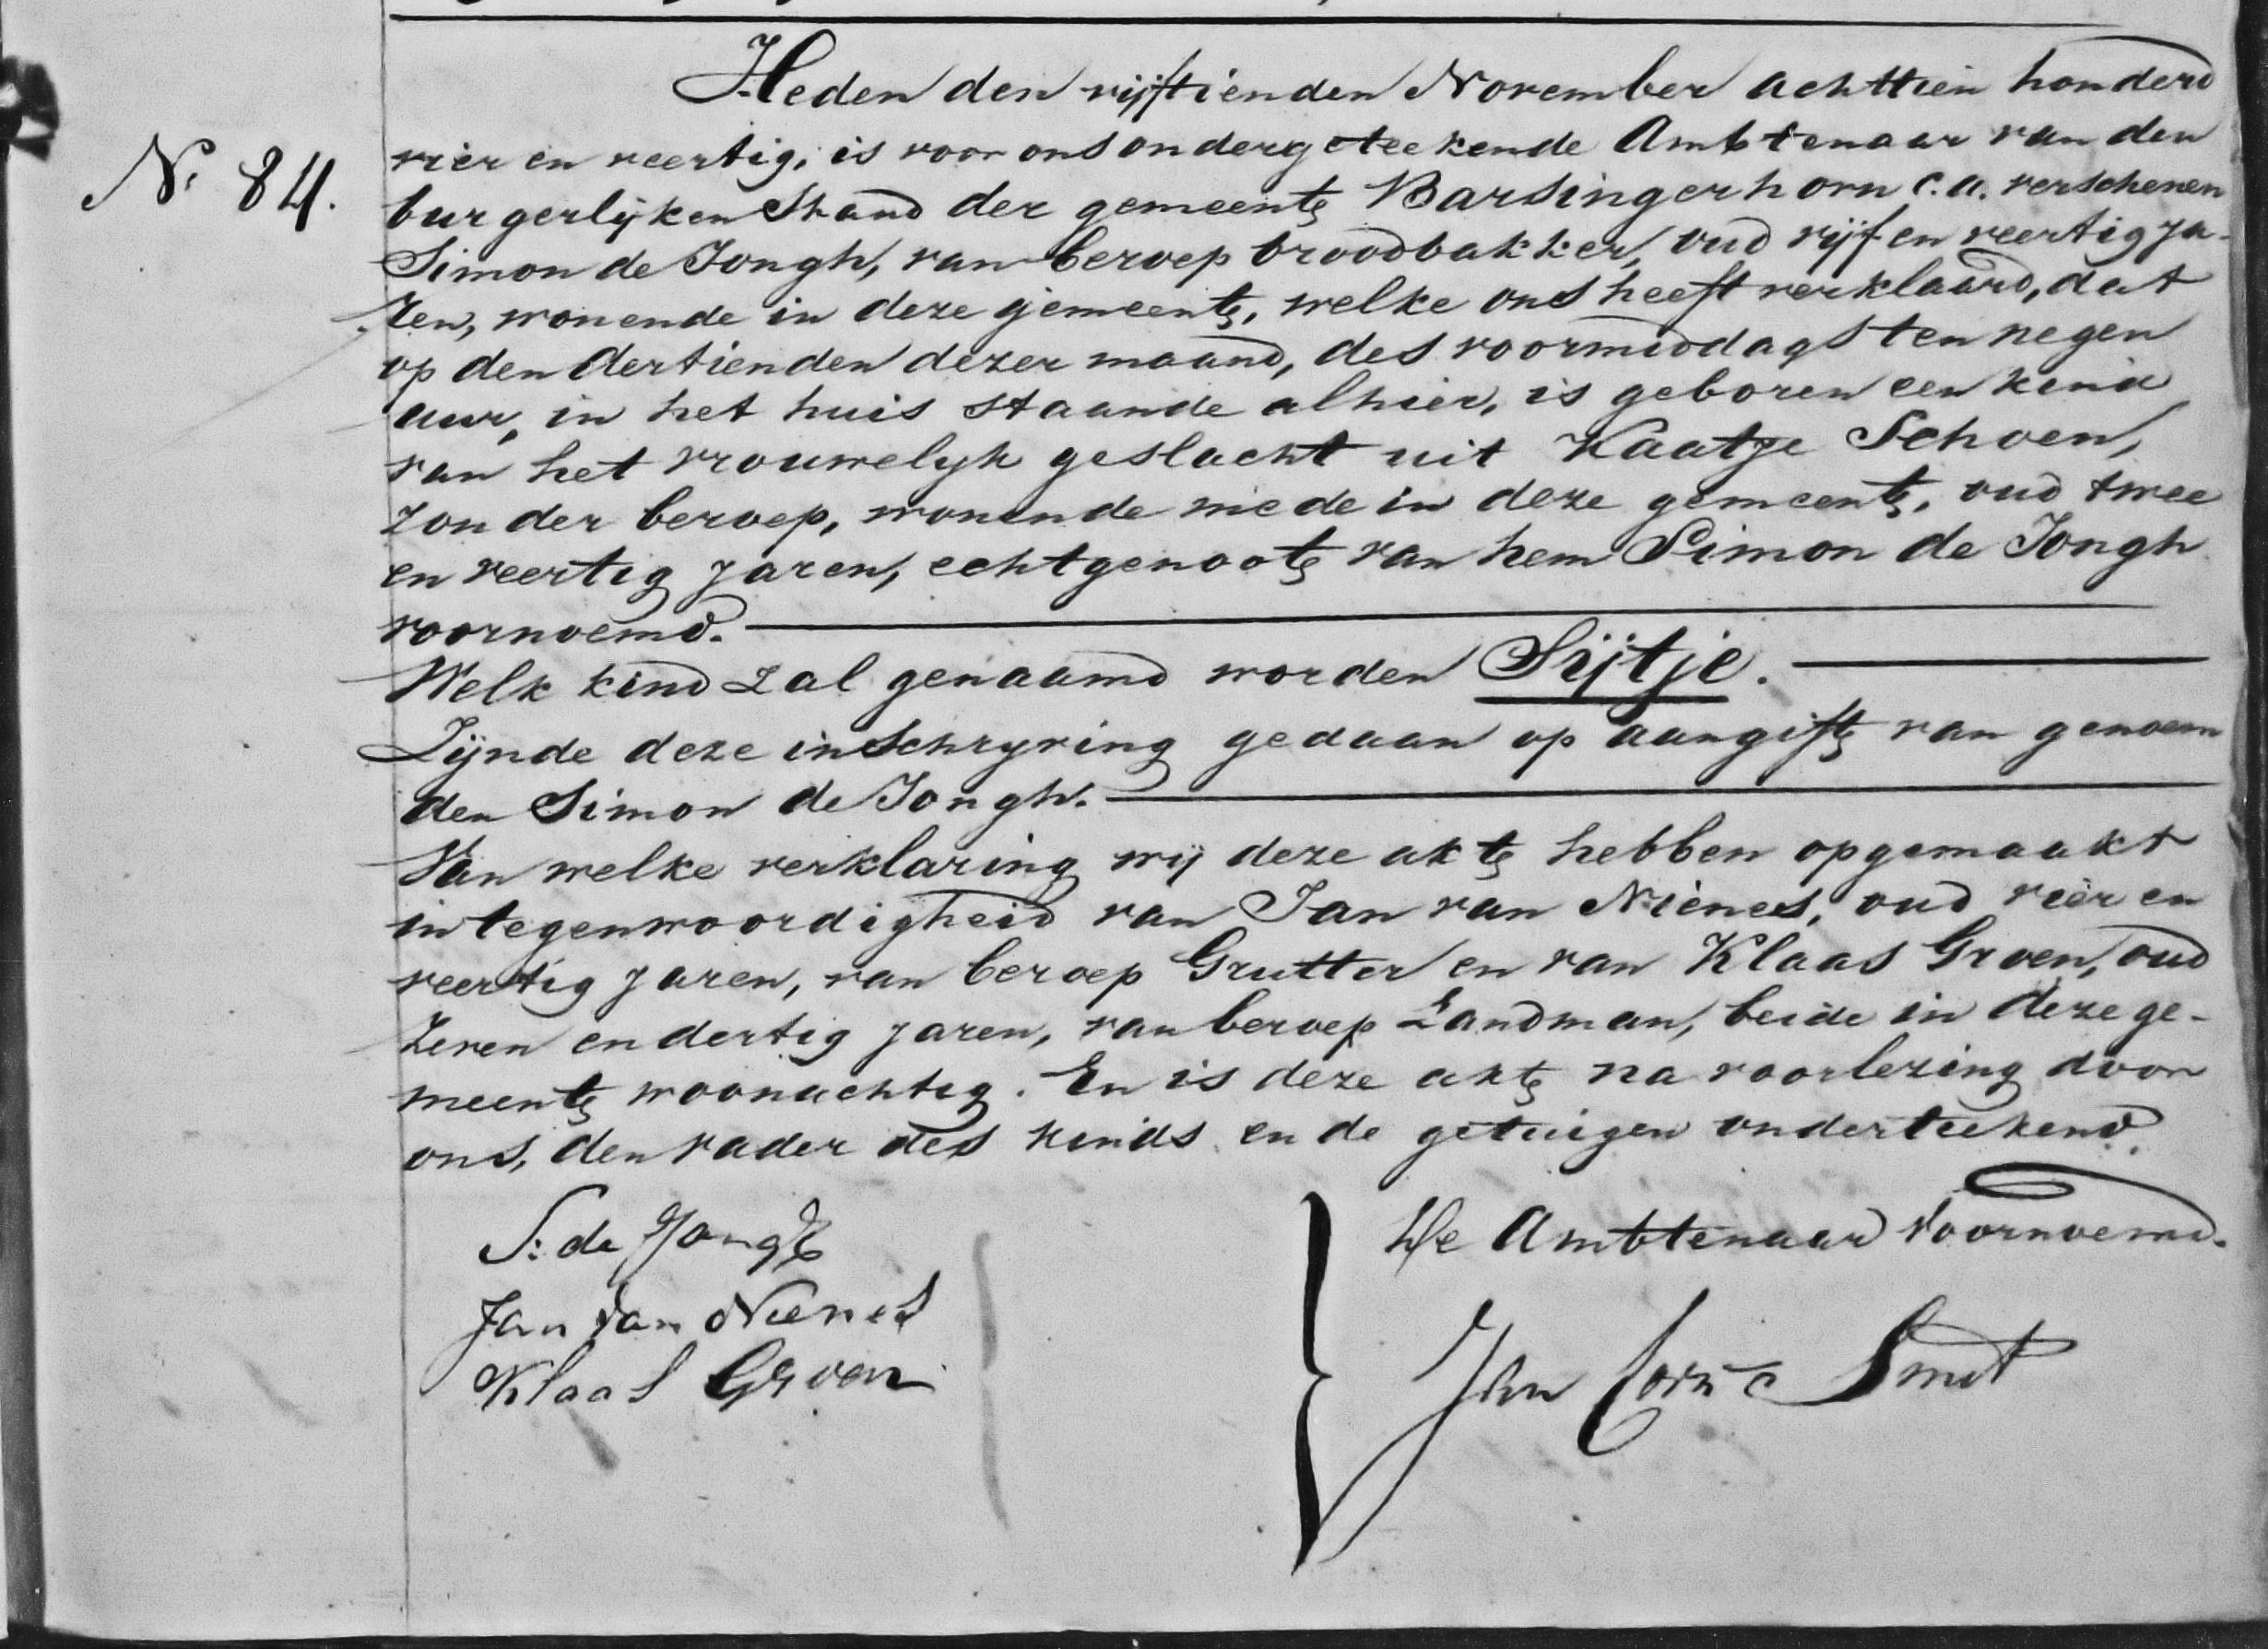 Heden den vijftienden November achttien honderd
N.o 84.
vier en veertig, is voor ons ondergeteekende Ambtenaar van den
burgerlijken Stand der gemeente Barsingerhorn c.a. verschenen
Simon de Jongh, van beroep broodbakker, oud vijf en veertig ja-
ren, wonende in deze gemeente, welke ons heeft verklaard, dat
op den dertienden dezer maand, des voormiddags ten negen
uur, in het huis staande alhier, is geboren een kind
van het vrouwelijk geslacht uit Kaatje Schoen,
zonder beroep, wonende mede in deze gemeente, oud twee
en veertig jaren, echtgenoote van hem Simon de Jongh
voornoemd.
Welk kind zal genaamd worden Sijtje.
Zijnde deze inschryving gedaan op aangifte van genoem
den Simon de Jongh.
Van welke verklaring wij deze akte hebben opgemaakt
in tegenwoordigheid van Jan van Nienes, oud vier en
veertig jaren, van beroep Grutter en van Klaas Groen, oud
zeven en dertig jaren, van beroep Landman, beide in deze ge-
meente woonachtig. En is deze akte na voorlezing door
ons, den vader des kinds en de getuigen onderteekend.
S: de Jongh
Jan van Nienes
Klaas Groen
De Ambtenaar voornoemd.
Jan Corn.s Smit